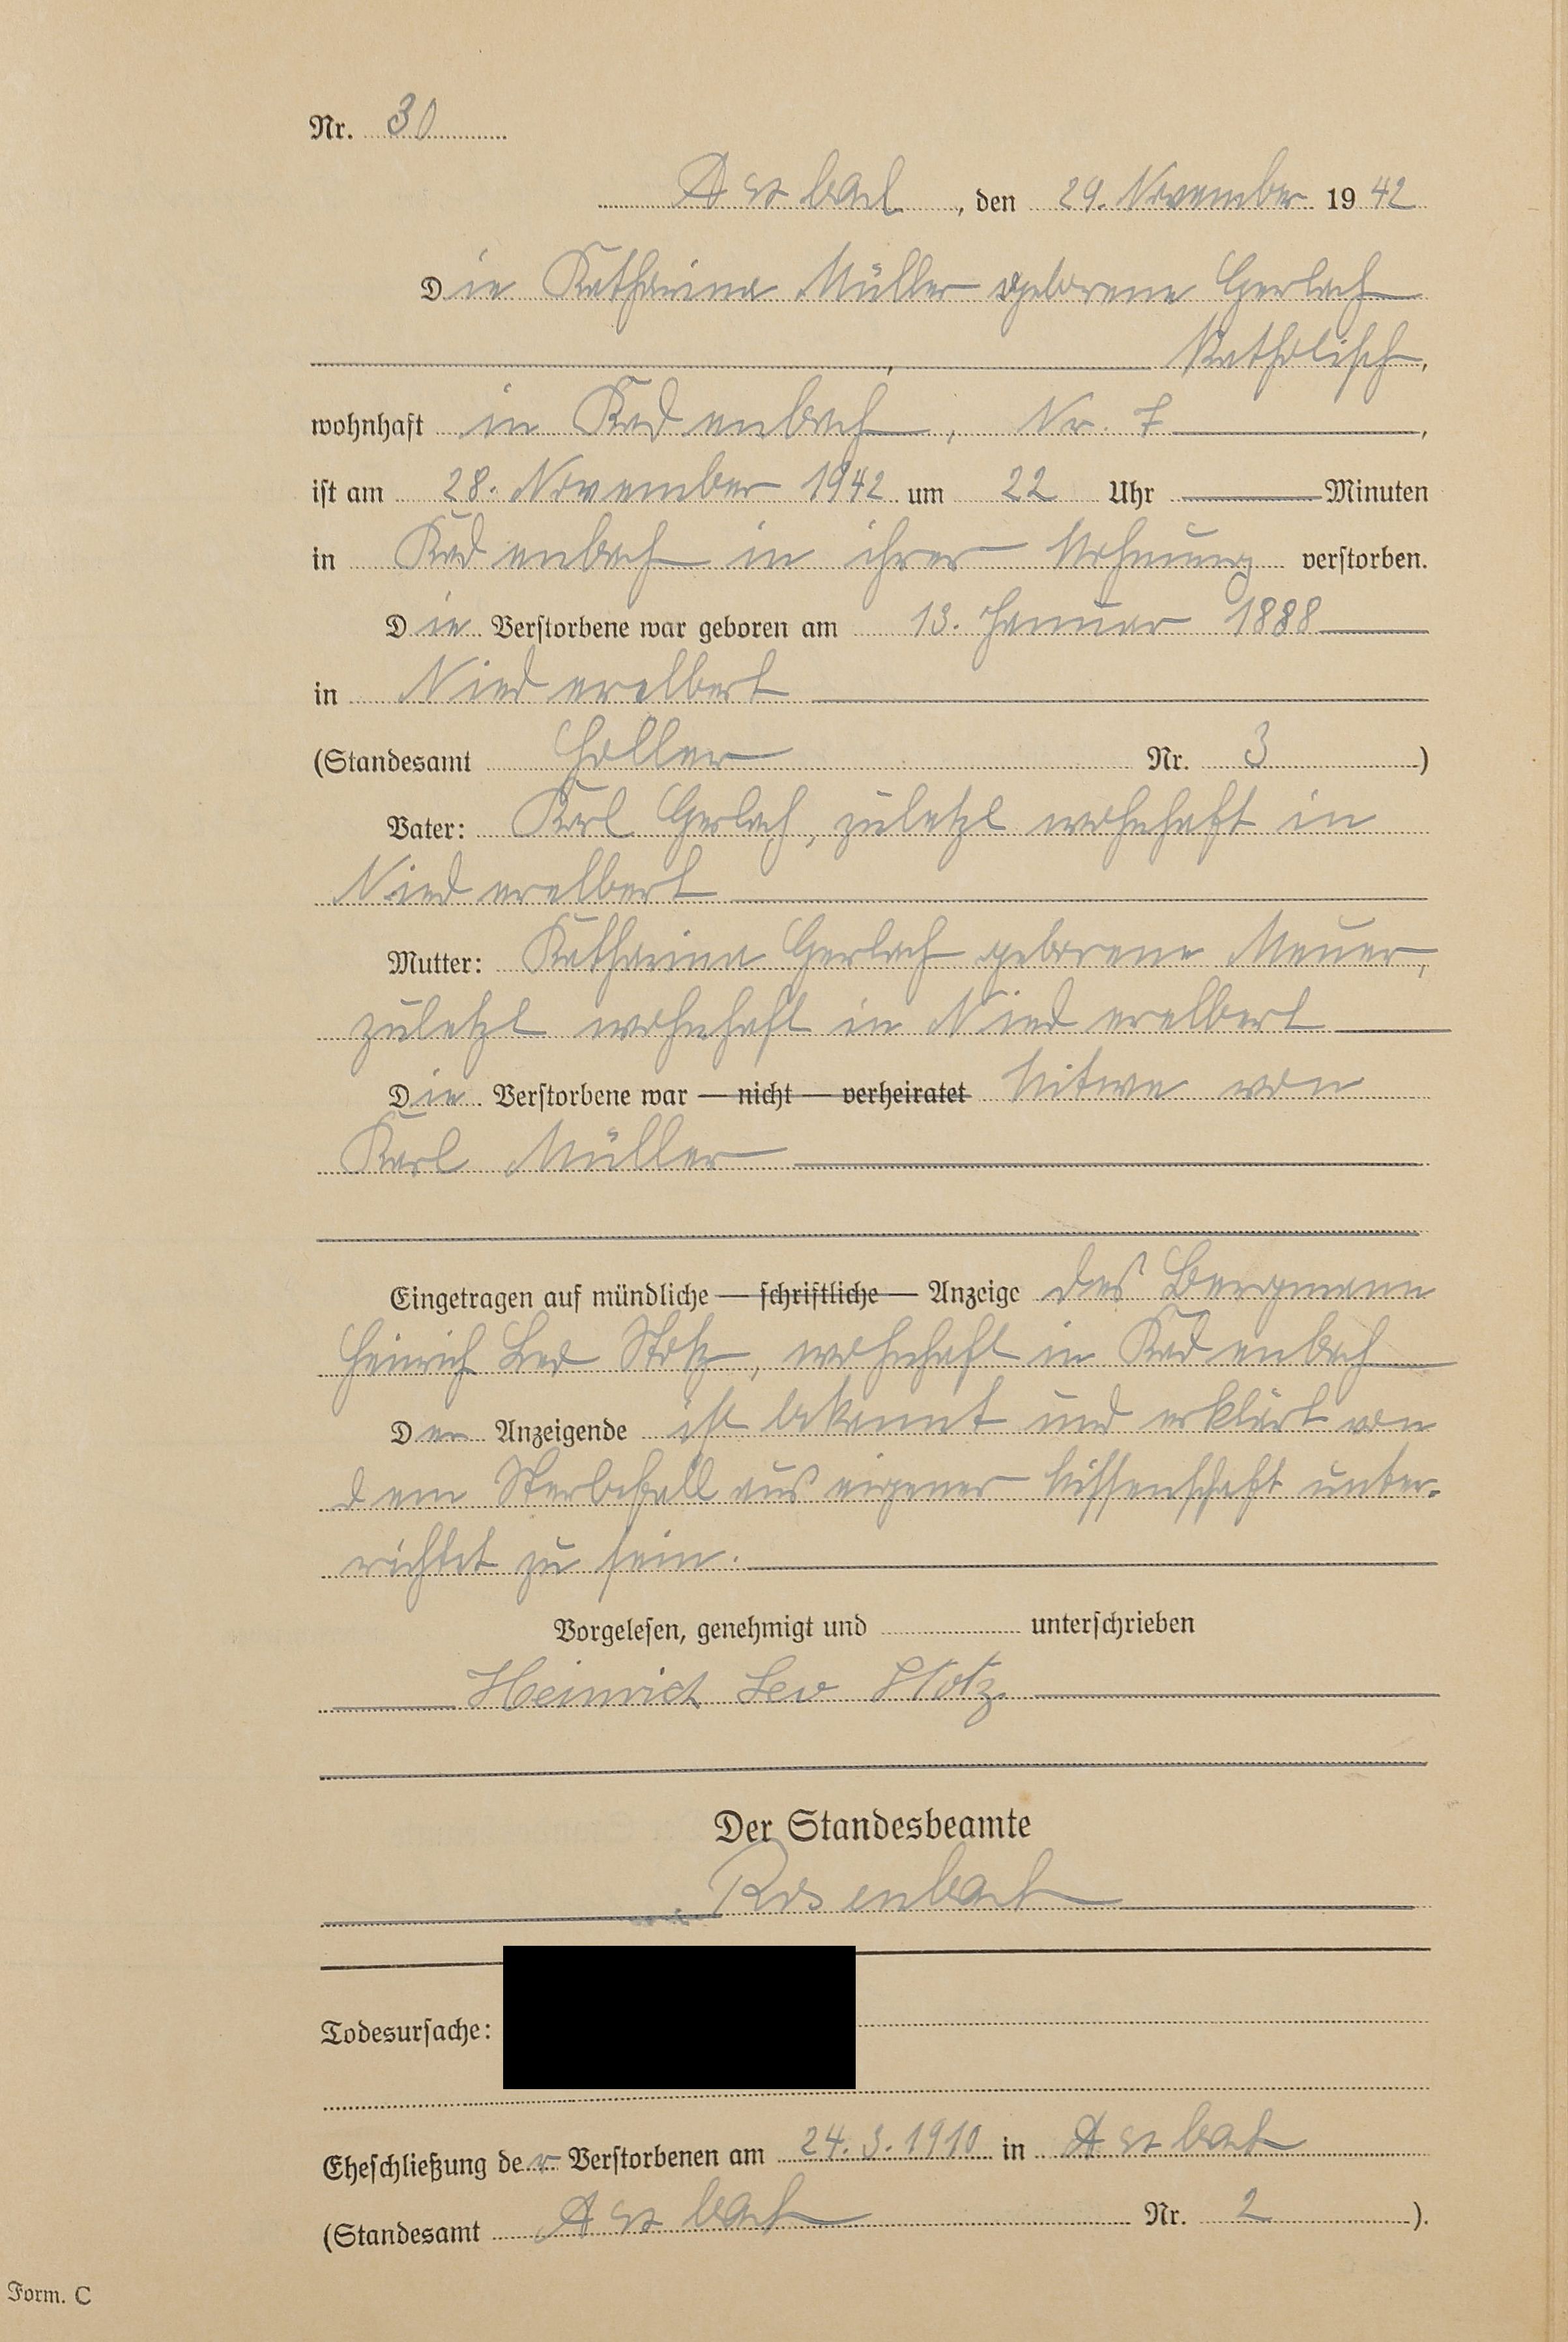 Nr. 30
Arzbach, den 29. November 1942
Die Katharina Müller geborene Gerlach
, Katholisch,
wohnhaft in Kadenbach, Nr. 7,
ist am 28. November 1942 um 22 Uhr Minuten
in Kadenbach in ihrer Wohnung verstorben.
Die Verstorbene war geboren am 13. Januar 1888
in Niederelbert
(Standesamt Holler Nr. 3)
Vater: Karl Gerlach, zuletzt wohnhaft in
Niederelbert
Mutter: Katharina Gerlach geborene Meuer,
zuletzt wohnhaft in Niederelbert
Die Verstorbene war — nicht — verheiratet Witwe von
Karl Müller
Eingetragen auf mündliche — schriftliche — Anzeige des Bergmann
Heinrich Leo Stotz, wohnhaft in Kadenbach
Der Anzeigende ist bekannt und erklärt von
dem Sterbefall aus eigener Wissenschaft unter-
richtet zu sein.
Vorgelesen, genehmigt und unterschrieben
Heinrich Leo Stotz
Der Standesbeamte
Rosenbach
Todesursache:
Eheschließung der Verstorbenen am 24.3.1910 in Arzbach
(Standesamt Arzbach Nr. 2).
Form. C